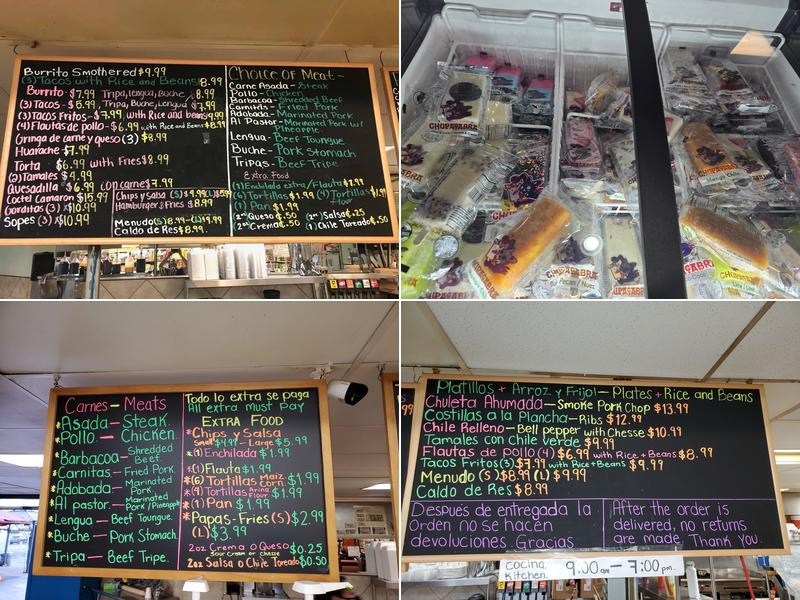 Burrito Smothered $9.99
(3) Tacos with Rice and Beans 8.99
Burrito - $7.99 Tripa, Lengua, Buche 8.99
(3) Tacos - $5.99, Tripa, Buche, Lengua $7.99
(3) Tacos Fritos - $7.99, with Rice and beans 9.99
(4) Flautas de pollo - $6.99 with Rice and Beans $8.99
Gringa de carne y queso (3) $8.99
Huarache - $7.99
Torta $6.99 with Fries $8.99
(2) Tamales $4.99
Quesadilla $6.99 con carne $7.99
Coctel Camaron $15.99
Gorditas (3) x $10.99
Sopes (3) x $10.99
Chips y Salsa (S) $4.99 (L) $5.99
Hamburger $ Fries $8.99
Menudo (S) 8.99 - (L) 9.99
Caldo de Res $8.99.
Choice of Meat -
Carne Asada - Steak
Pollo - Chicken
Barbacoa - Shredded Beef
Carnitas - Fried Pork
Adobada - Marinated Pork
Al Pastor - Marinated Pork w/
Pineapple
Lengua - Beef Toungue
Buche - Pork Stomach
Tripas - Beef Tripe
Extra Food
(1) Enchilada extra / Flauta $1.99
(6) Tortillas $1.99 (4) Tortillas $1.99
Flour
(1) Pan $1.99
2oz Queso $.50 (2oz) Salsa $.25
2oz Crema $.50 (1) Chile Toreado $.50
CHUPACABRA
CHUPACABRA
CHUPACABRA
CHUPACABRA
Pecan / Nuez
Lime / Limón
Carnes - Meats
*Asada - Steak
*Pollo - Chicken
*Barbacoa - Shredded
Beef
*Carnitas - Fried Pork
*Adobada - Marinated
Pork
*Al pastor - Marinated
Pork / Pineapple
*Lengua - Beef Toungue
*Buche - Pork Stomach
*Tripa - Beef Tripe.
Todo lo extra se paga
All extra must Pay
Extra Food
*Chips y Salsa
Small $4.99 - Large $5.99
*(1) Enchilada $1.99
*(1) Flauta $1.99
*(6) Tortillas Maiz Corn $1.99
*(4) Tortillas Arina Flour $1.99
*(1) Pan $1.99
*Papas - Fries (S) $2.99
(L) $3.99
2oz Crema O Queso $0.25
Sour Cream or Cheese
2oz Salsa o Chile Toreado $0.50
Platillos + Arroz y Frijol - Plates + Rice and Beans
Chuleta Ahumada - Smoke Pork Chop $13.99
Costillas a la Plancha - Ribs $12.99
Chile Relleno - Bell pepper with Chesse $10.99
Tamales con chile verde $9.99
Flautas de Pollo (4) $6.99 with Rice + Beans $8.99
Tacos Fritos (3) $7.99 with Rice + Beans $9.99
Menudo (S) $8.99 (L) $9.99
Caldo de Res $8.99
Después de entregada la
Orden no se hacen
devoluciones. Gracias
After the order is
delivered, no returns
are made. Thank you.
Cocina
Kitchen. 9:00 am - 7:00 pm.